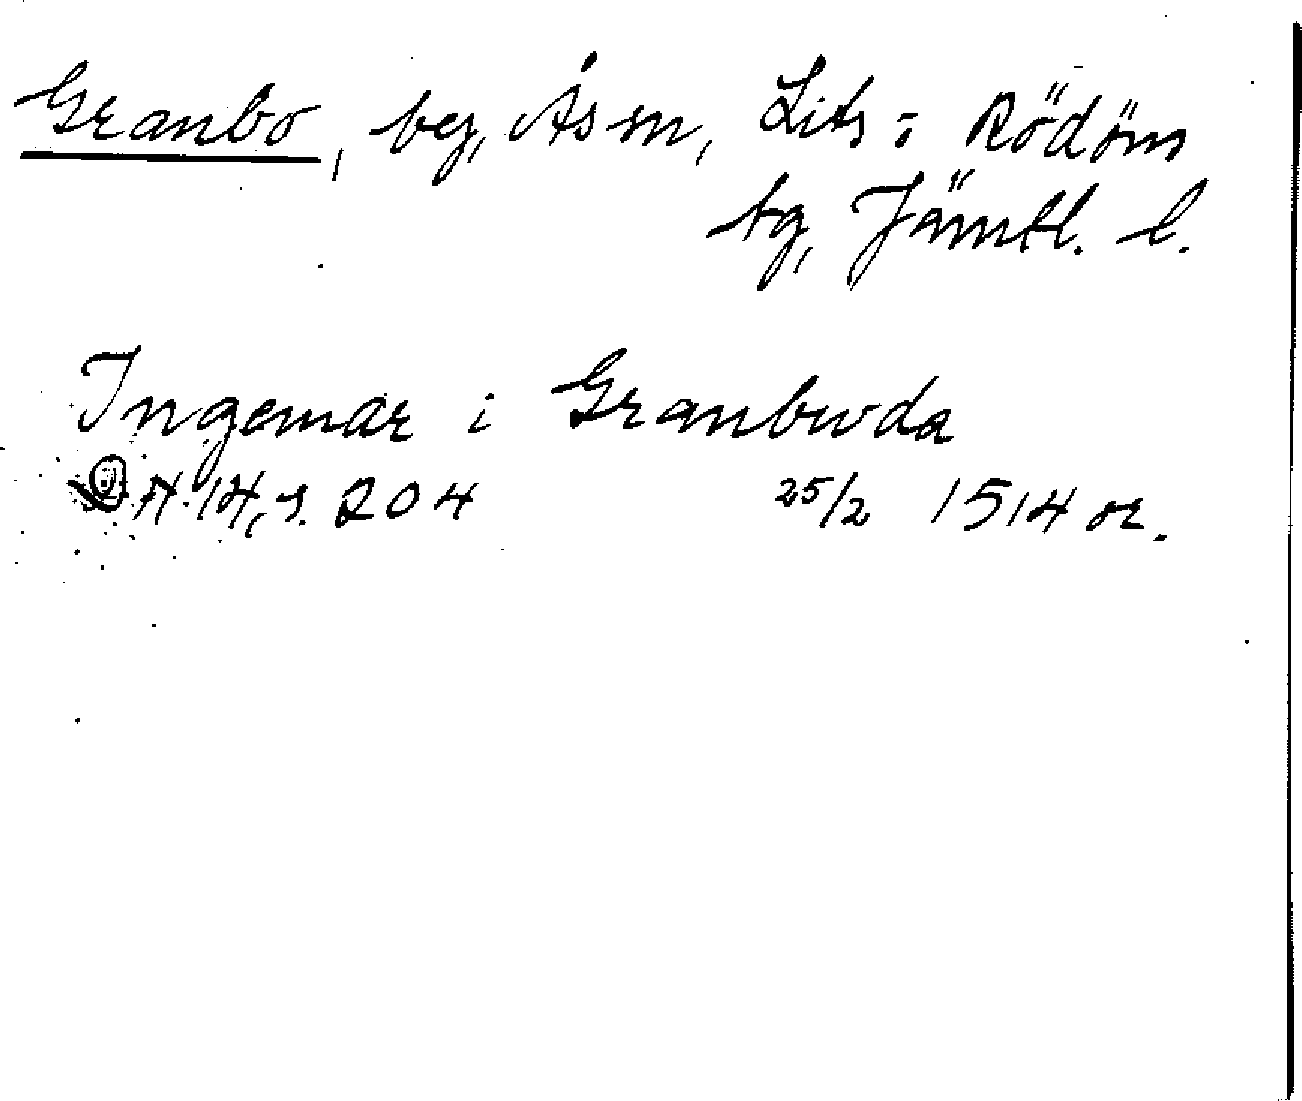 Granbo, by, Ås sn, Lits o Rödöns
tg, Jämtl. l.
Ingemar i Granbwda
A 14, s. 204 25/2 1514 or.